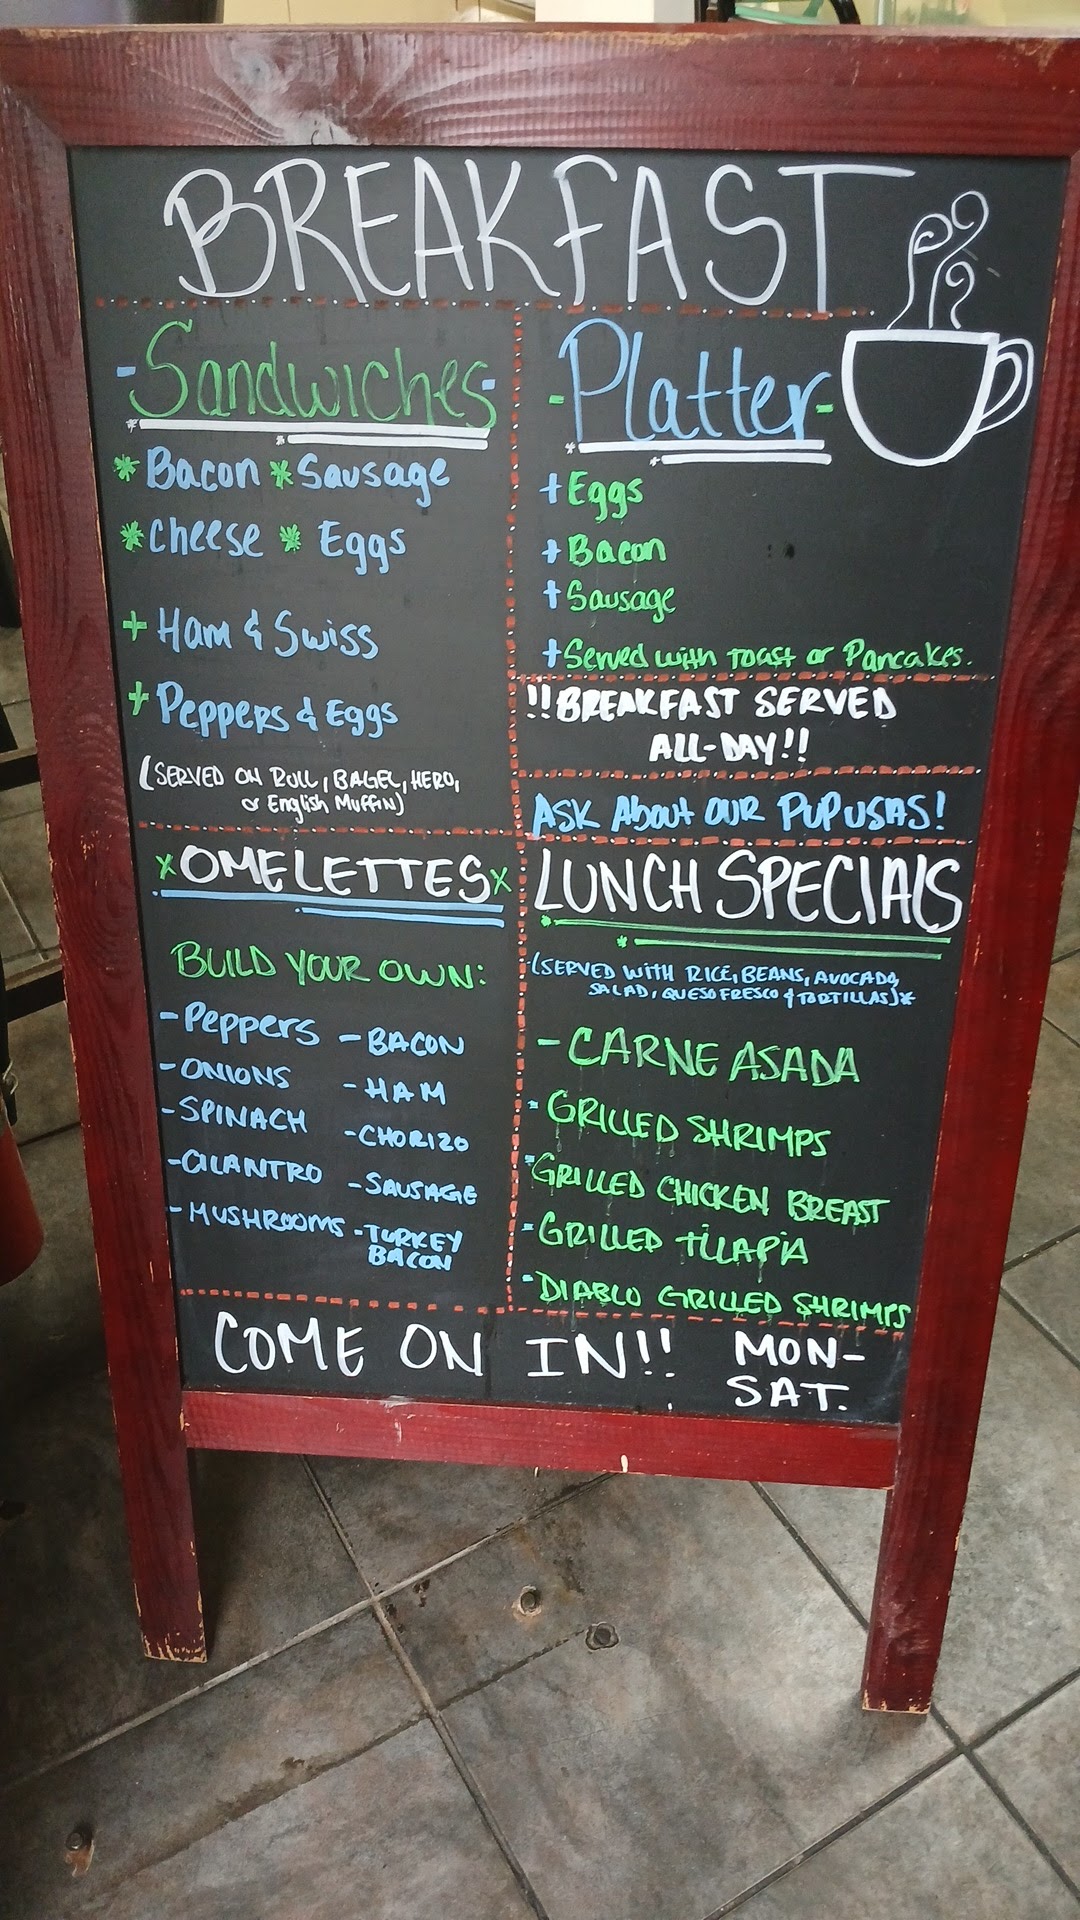 BREAKFAST
-Sandwiches-
* Bacon * Sausage
* Cheese * Eggs
+ Ham & Swiss
+ Peppers & Eggs
(SERVED ON ROLL, BAGEL, HERO,
or English Muffin)
-Platter-
+ Eggs
+ Bacon
+ Sausage
+ Served with Toast or Pancakes.
!!BREAKFAST SERVED
ALL-DAY!!
ASK About OUR PUPUSAS!
x OMELETTES x
BUILD YOUR OWN:
- Peppers
- ONIONS
- SPINACH
- CILANTRO
- MUSHROOMS
- BACON
- HAM
- CHORIZO
- SAUSAGE
- TURKEY
BACON
LUNCH SPECIALS
(SERVED WITH RICE, BEANS, AVOCADO,
SALAD, QUESO FRESCO & TORTILLAS)*
- CARNE ASADA
- GRILLED SHRIMPS
- GRILLED CHICKEN BREAST
- GRILLED TILAPIA
- DIABLO GRILLED SHRIMPS
COME ON IN!!
MON-
SAT.